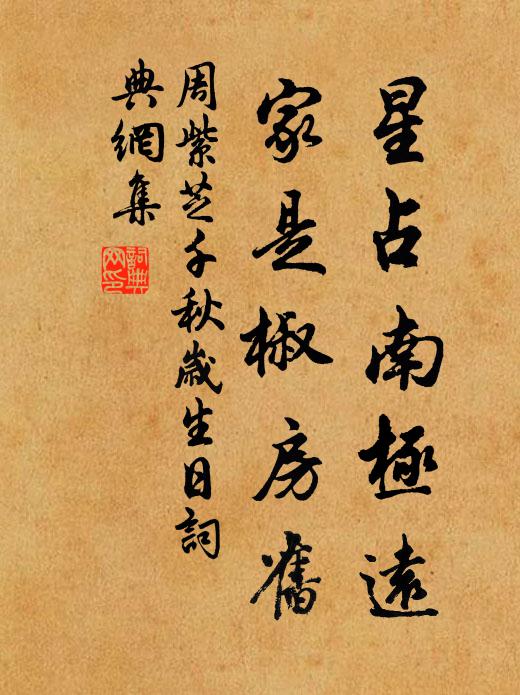 星占南極遠
家是椒房舊
周紫芝千秋歲生日詞
典網集
詞典
网印